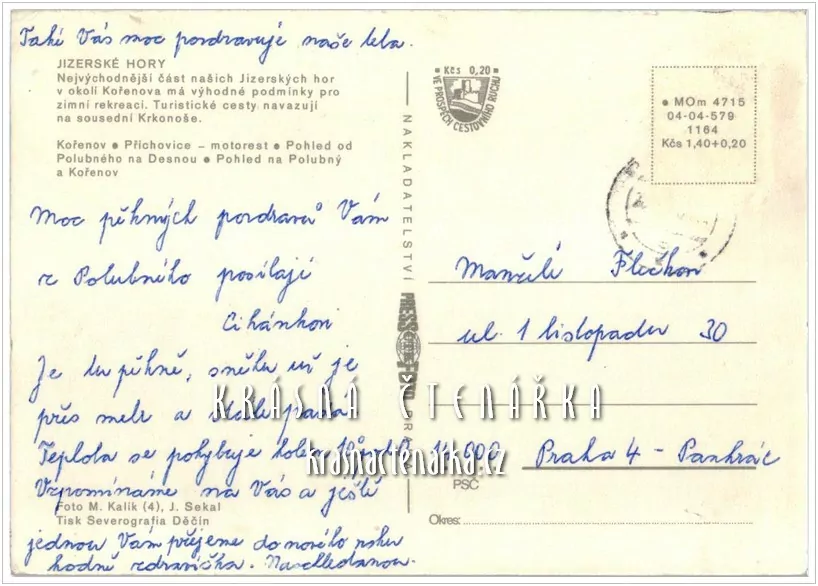 Také Vás moc pozdravuje naše teta.
JIZERSKÉ HORY
Nejvýchodnější část našich Jizerských hor
v okolí Kořenova má výhodné podmínky pro
zimní rekreaci. Turistické cesty navazují
na sousední Krkonoše.
Kořenov ● Příchovice – motorest ● Pohled od
Polubného na Desnou ● Pohled na Polubný
a Kořenov
Moc pěkných pozdravů Vám
z Polubného posílají
Cihánkovi
Je tu pěkně, sněhu už je
přes metr a stále padá.
Teplota se pohybuje kolem
Vzpomínáme na Vás a ještě
Foto M. Kalík (4), J. Sekal
Tisk Severografia Děčín
jednou Vám přejeme do nového roku
hodně zdravíčka. Nashledanou.
NAKLADATELSTVÍ
PRESSFOTO
Kčs 0,20
VE PROSPĚCH CESTOVNÍHO RUCHU
● MOm 4715
04-04-579
1164
Kčs 1,40+0,20
Manželé
ul. 1 listopadu 30
Praha 4 - Pankrác
PSČ
Okres:
KRÁSNÁ ČTENÁŘKA
krasnactenarka.cz